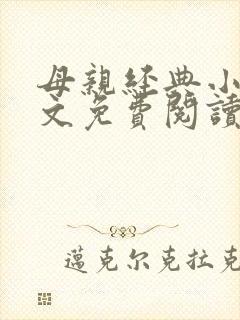 母親經典小
文免費閱讀
邁克尔克拉克